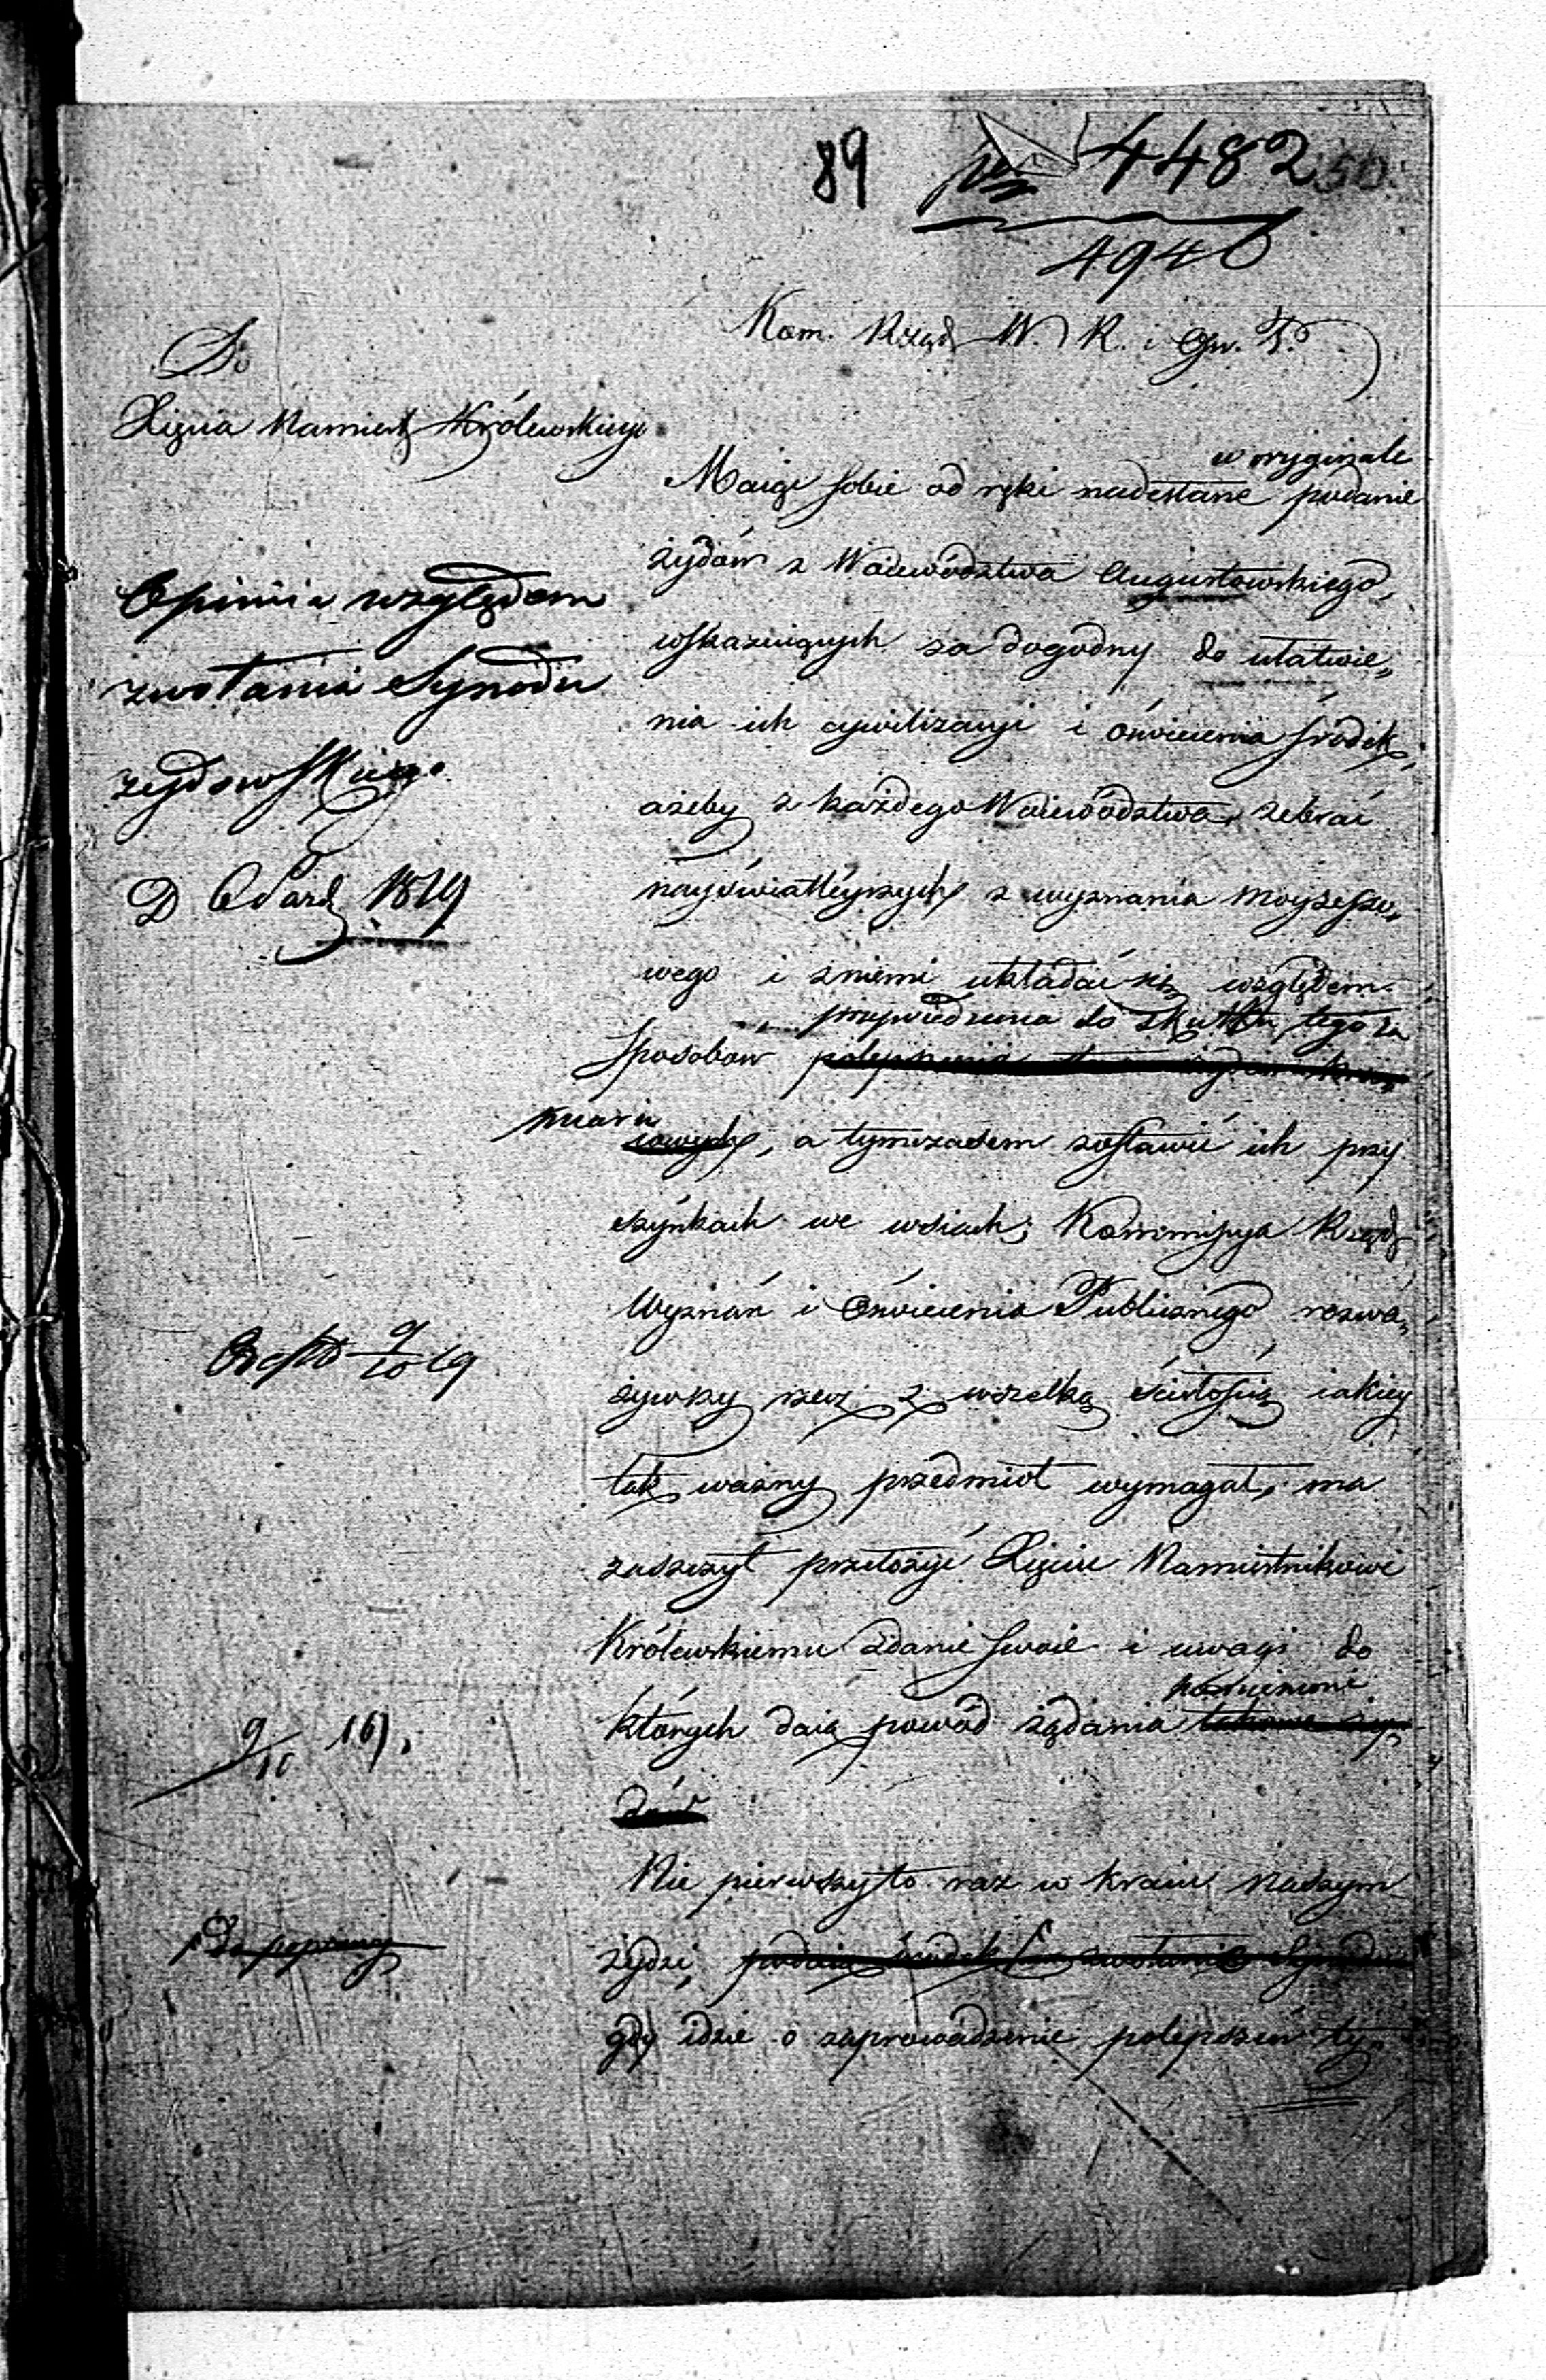 89
4482
50.
4940
Kom. Rząd. W. R. i Ośw. P.
Do
Xięcia Namiest. Królewskiego
Opiniia względem
zwołania Synodu
żydowskiego
D. 8 Paźd. 1819
w oryginale
Maiąc sobie od ręki nadesłane podanie
żydów z Woiewództwa Augustowskiego,
wskazuiących za dogodny do ułatwie„
nia ich cywilizacyi i oświecenia środek,
ażeby z każdego Woiewództwa zebrać
nayświatleyszych z wyznania moyżeszo„
wego i z niemi układać się względem
przywiedzenia do skutku tego za
sposobów polepszenia
miaru
iowych, a tymczasem zostawić ich przy
szynkach we wsiach; Kommissya Rząd.
Wyznań i Oświecenia Publicznego rozwa„
żywszy rzecz z wszelką ścisłością iakiey
tak ważny przedmiot wymagał, ma
zaszczyt przełożyć Xięciu Namiestnikowi
Królewskiemu zdanie swoie i uwagi do
pomienione
których daią powód żądania takowe ży„
dów
Nie pierwszy to raz w kraiu naszym
żydzi, podaią środek zwołania Synodu
gdy idzie o zaprowadzenie polepszeń ty
9/10 19
9/10 16).